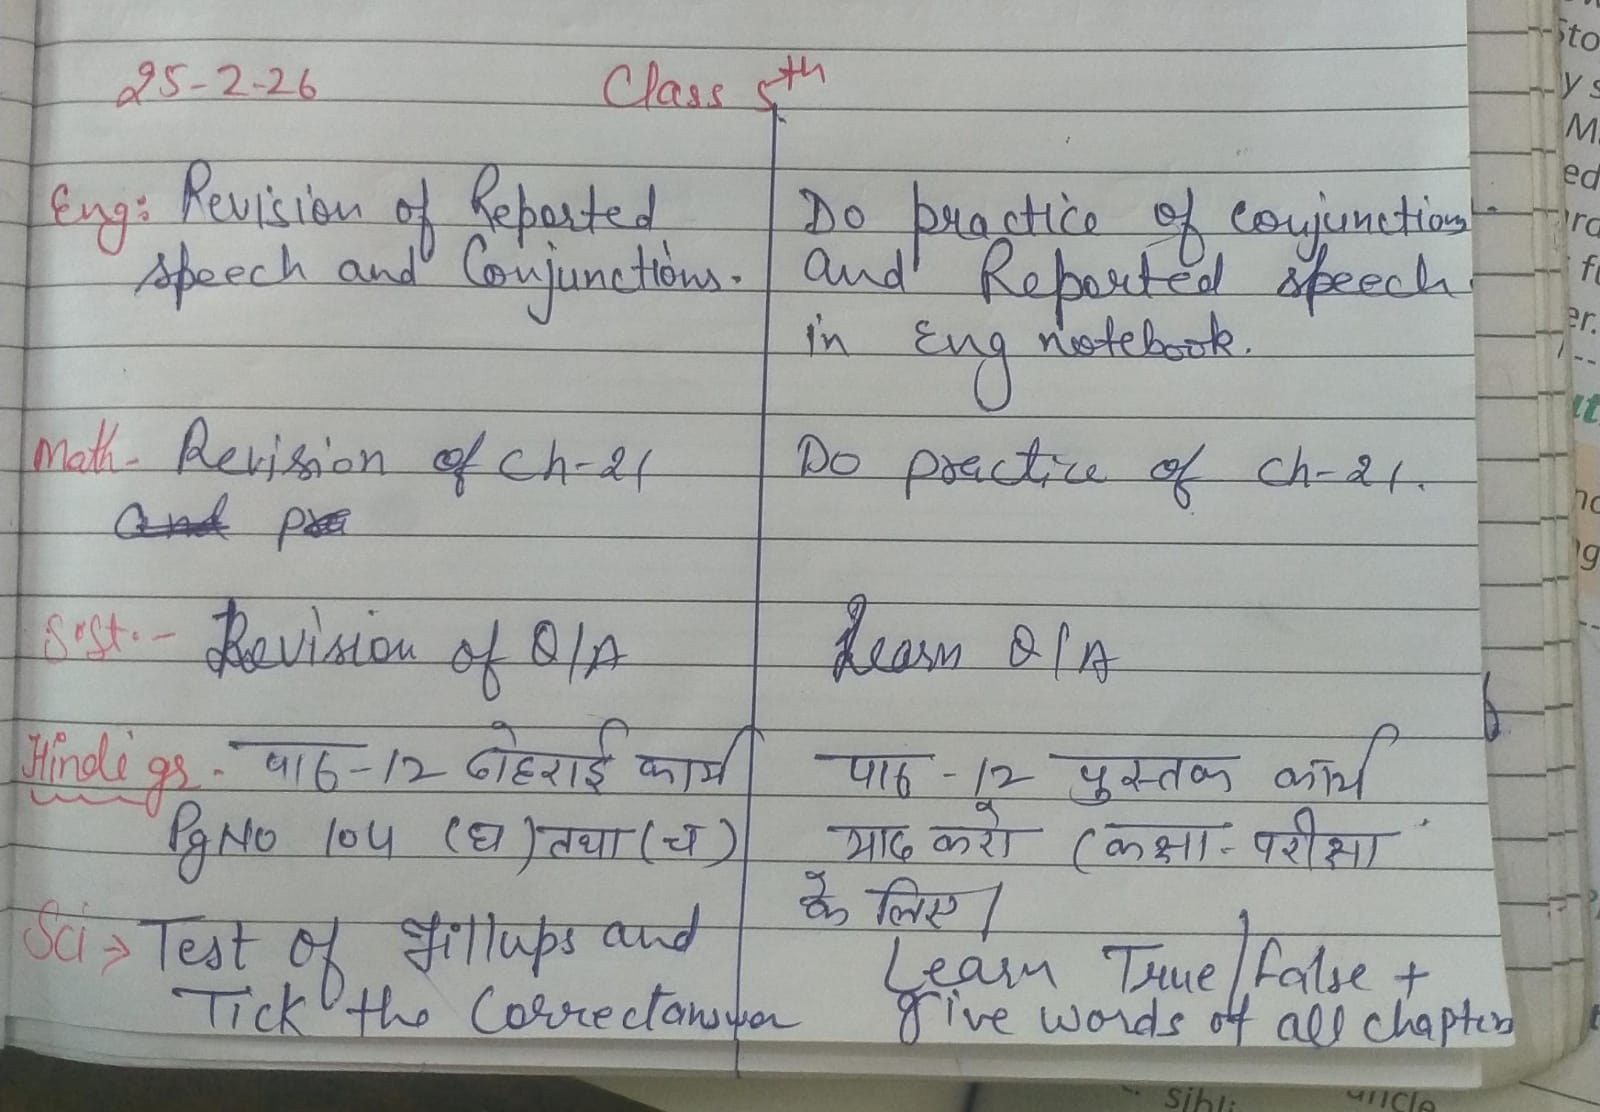 25-2-26 Class 5th
Eng: Revision of Reported
speech and Conjunctions.
Do practice of conjunctions
and Reported speech
in Eng notebook.
Math- Revision of Ch-21
and pra
Do practice of Ch-21.
S.St.- Revision of Q/A
Learn Q/A
Hindi gr. पाठ-12 दोहराई कार्य
Pg No 104 (घ) तथा (च)
पाठ-12 पुस्तक कार्य
याद करो (कक्षा-परीक्षा
के लिए)
Sci → Test of Fillups and
Tick the Correct answer
Learn True/False +
Give words of all chapters
sibli
uncle